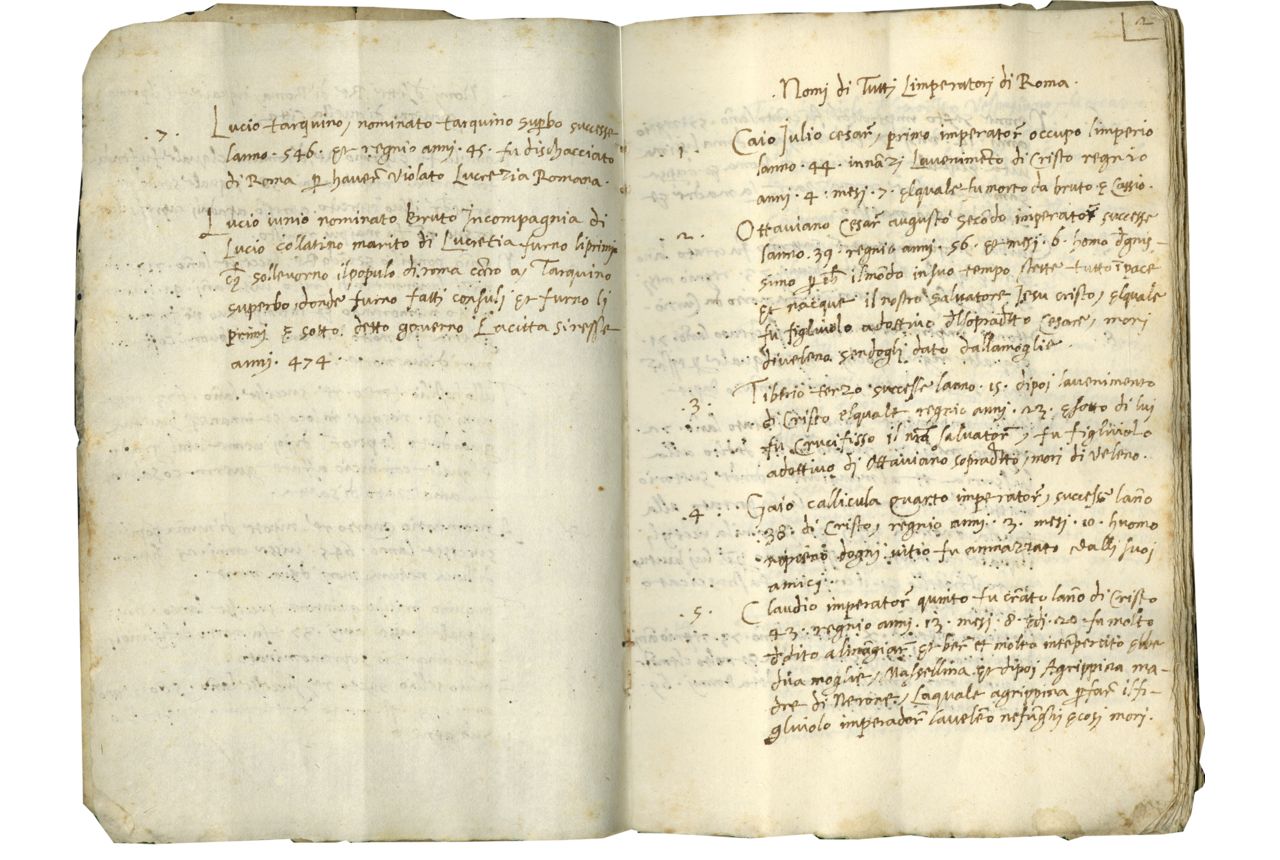 .7. Lucio tarquino, nominato tarquino superbo successe
lanno . 546 . et regnio anni . 45 . fu dischacciato
di Roma p haver violato Lucrezia Romana .
Lucio iunio nominato bruto Incompagnia di
Lucio collatino marito di Lucretia furno li primj
sollevorno il populo di roma cōtro a, Tarquino
superbo, donde furno fatti consulj et furno li
primj e sotto detto governo Lacitta siresse
anni . 474 .
2
. Nomi di Tutti Limperatorj di Roma .
.1. Caio Julio cesar, primo imperator occupo limperio
lanno . 44 . innāzi Lavenimēto di Cristo regnio
anni . 4 . mesi . 7 . elquale fu morto da bruto e Cassio .
.2. Ottaviano Cesar augusto secōdo imperator successe
lanno . 39 . regnio anni . 56 . et mesi . 6 . homo dgnis-
simo ilmōdo in suo tempo stette tutto ī pace
et nacque il nostro salvatore Jesu cristo, elquale
fu figliuolo adottivo dl sopradtto Cesare, mori
di veleno sendogli dato dalla moglie .
.3. Tiberio terzo successe lanno . 15 . dipoi lavenimento
di Cristo elquale regnio anni . 23 . e sotto di lui
fu Crucifisso il salvator, fu figliuolo
adottivo di Ottaviano sopradtto, mori di veleno .
.4. Gaio callicula quarto imperator, successe lāno
. 38 . di Cristo, regnio anni . 3 . mesi . 10 . huomo
dogni vitio fu amazzato dalli suoi
amici .
.5. Claudio imperator quinto fu crēato lāno di Cristo
43 . regnio anni . 13 . mesi . 8 . 20 . fu molto
ddito al māgiar et ber et molto ebbe
dua moglie, Massellina et dipoi Agrippina ma-
dre di Nerone, Laquale agrippina p far il fi-
gliuolo imperador lavelenō ne funghi e cosi mori .